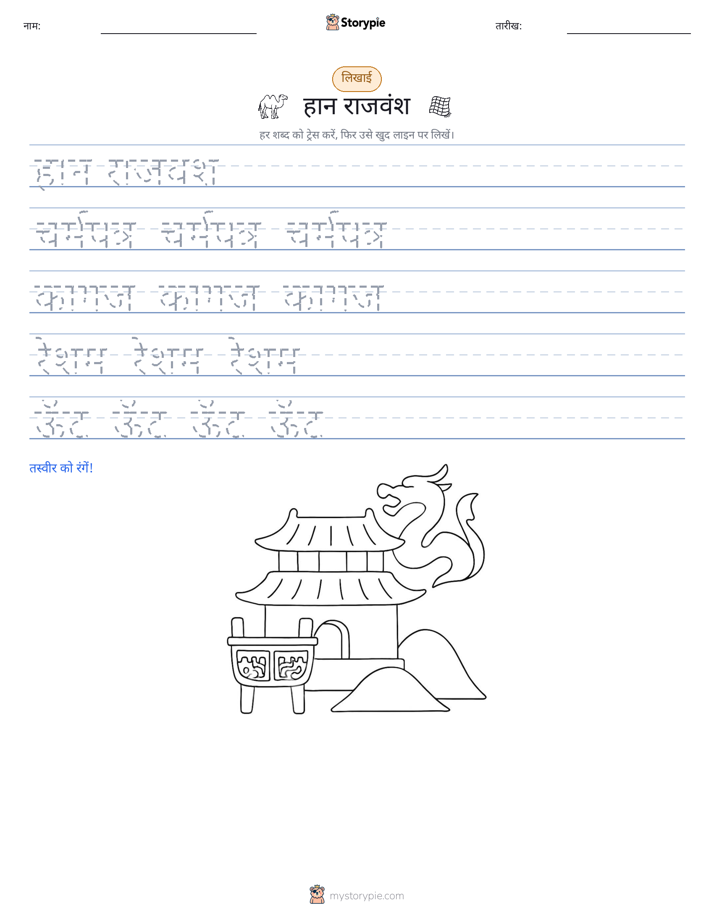 नाम: Storypie तारीख:
लिखाई
हान राजवंश
हर शब्द को ट्रेस करें, फिर उसे खुद लाइन पर लिखें।
हान राजवंश
चर्मपत्र चर्मपत्र चर्मपत्र
कागज कागज कागज
रेशम रेशम रेशम
ऊँट ऊँट ऊँट ऊँट
तस्वीर को रंगें!
mystorypie.com